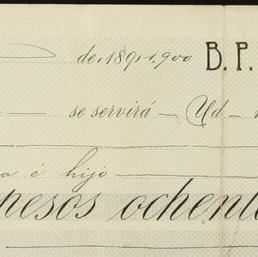 de 1891-1,900 B.P.
se servirá Ud
a é hijo
pesos ochent